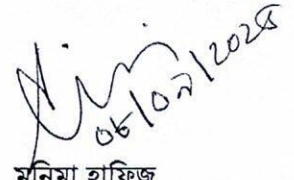 ০৮/০৯/২০২৫
মনিমা হাফিজ